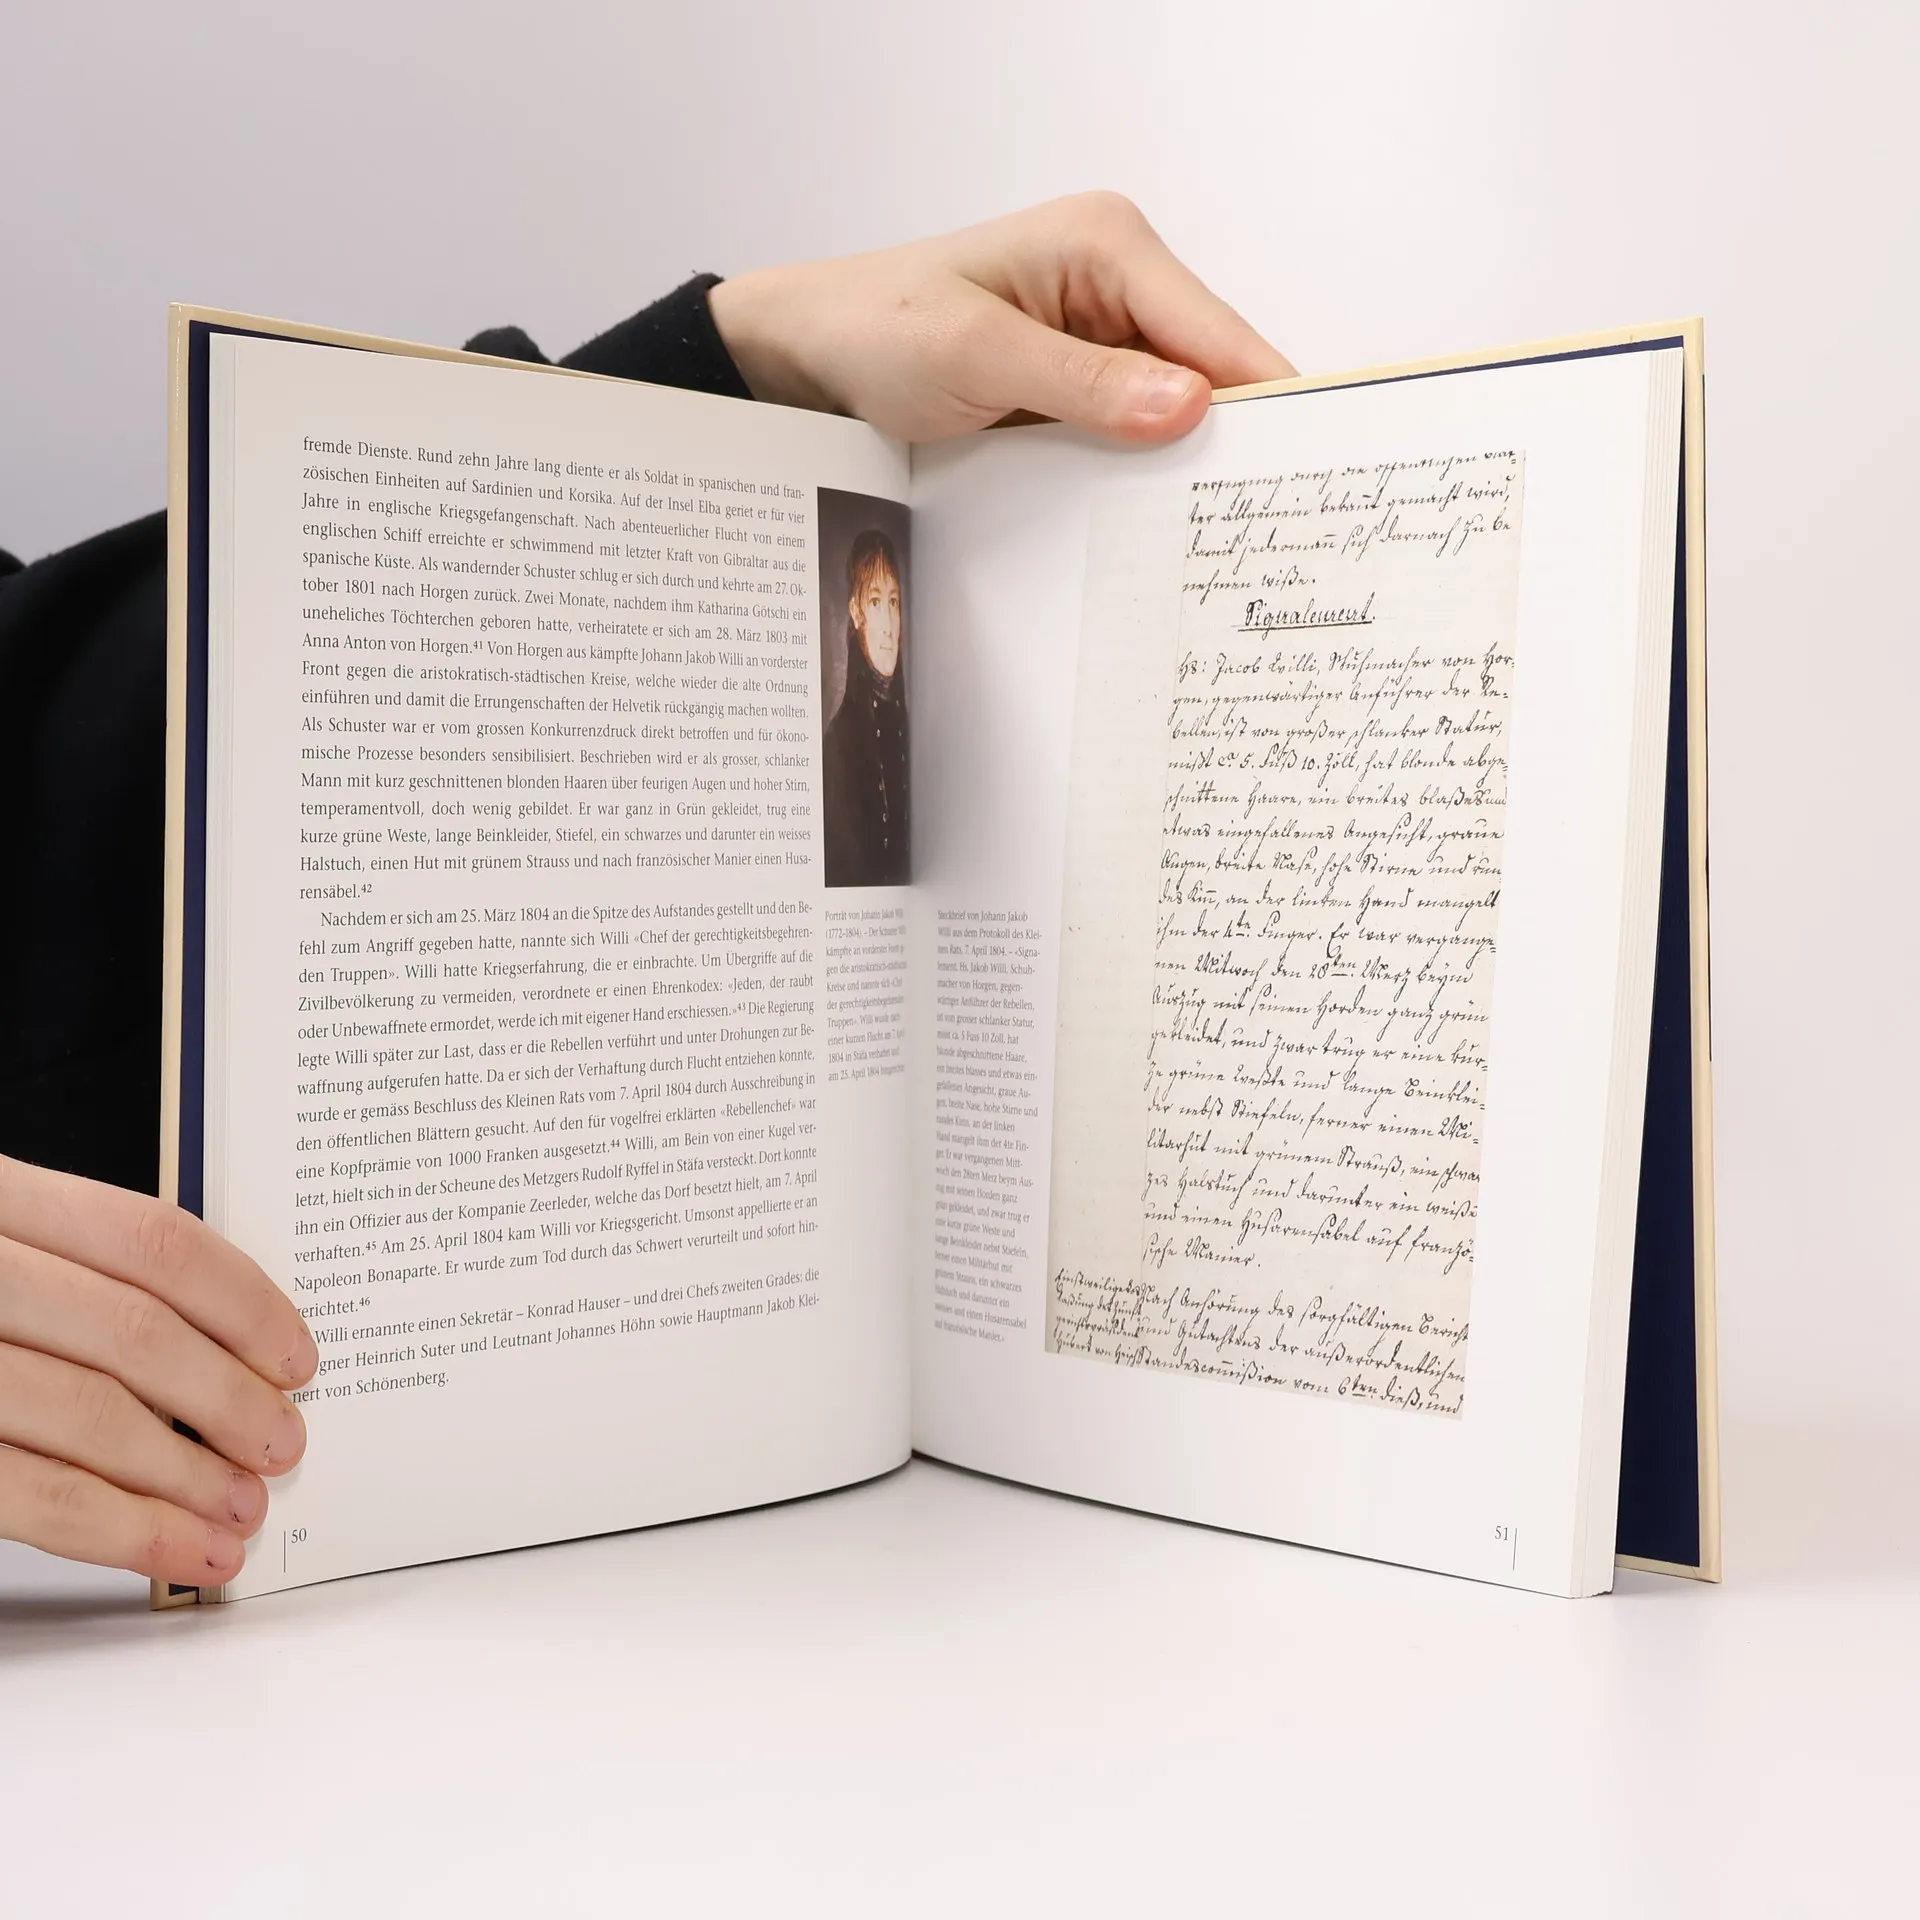 fremde Dienste. Rund zehn Jahre lang diente er als Soldat in spanischen und fran-
zösischen Einheiten auf Sardinien und Korsika. Auf der Insel Elba geriet er für vier
Jahre in englische Kriegsgefangenschaft. Nach abenteuerlicher Flucht von einem
englischen Schiff erreichte er schwimmend mit letzter Kraft von Gibraltar aus die
spanische Küste. Als wandernder Schuster schlug er sich durch und kehrte am 27. Ok-
tober 1801 nach Horgen zurück. Zwei Monate, nachdem ihm Katharina Götschi ein
uneheliches Töchterchen geboren hatte, verheiratete er sich am 28. März 1803 mit
Anna Anton von Horgen.⁴¹ Von Horgen aus kämpfte Johann Jakob Willi an vorderster
Front gegen die aristokratisch-städtischen Kreise, welche wieder die alte Ordnung
einführen und damit die Errungenschaften der Helvetik rückgängig machen wollten.
Als Schuster war er vom grossen Konkurrenzdruck direkt betroffen und für ökono-
mische Prozesse besonders sensibilisiert. Beschrieben wird er als grosser, schlanker
Mann mit kurz geschnittenen blonden Haaren über feurigen Augen und hoher Stirn,
temperamentvoll, doch wenig gebildet. Er war ganz in Grün gekleidet, trug eine
kurze grüne Weste, lange Beinkleider, Stiefel, ein schwarzes und darunter ein weisses
Halstuch, einen Hut mit grünem Strauss und nach französischer Manier einen Husa-
rensäbel.⁴²
Nachdem er sich am 25. März 1804 an die Spitze des Aufstandes gestellt und den Be-
fehl zum Angriff gegeben hatte, nannte sich Willi «Chef der gerechtigkeitsbegehren-
den Truppen». Willi hatte Kriegserfahrung, die er einbrachte. Um Übergriffe auf die
Zivilbevölkerung zu vermeiden, verordnete er einen Ehrenkodex: «Jeden, der raubt
oder Unbewaffnete ermordet, werde ich mit eigener Hand erschiessen.»⁴³ Die Regierung
legte Willi später zur Last, dass er die Rebellen verführt und unter Drohungen zur Be-
waffnung aufgerufen hatte. Da er sich der Verhaftung durch Flucht entziehen konnte,
wurde er gemäss Beschluss des Kleinen Rats vom 7. April 1804 durch Ausschreibung in
den öffentlichen Blättern gesucht. Auf den für vogelfrei erklärten «Rebellenchef» war
eine Kopfprämie von 1000 Franken ausgesetzt.⁴⁴ Willi, am Bein von einer Kugel ver-
letzt, hielt sich in der Scheune des Metzgers Rudolf Ryffel in Stäfa versteckt. Dort konnte
ihn ein Offizier aus der Kompanie Zeerleder, welche das Dorf besetzt hielt, am 7. April
verhaften.⁴⁵ Am 25. April 1804 kam Willi vor Kriegsgericht. Umsonst appellierte er an
Napoleon Bonaparte. Er wurde zum Tod durch das Schwert verurteilt und sofort hin-
gerichtet.⁴⁶
Willi ernannte einen Sekretär – Konrad Hauser – und drei Chefs zweiten Grades: die
gner Heinrich Suter und Leutnant Johannes Höhn sowie Hauptmann Jakob Klei-
nert von Schönenberg.
50
Porträt von Johann Jakob Willi
(1772–1804). – Der Schuster Willi
kämpfte an vorderster Front ge-
gen die aristokratisch-städtischen
Kreise und nannte sich «Chef
der gerechtigkeitsbegehrenden
Truppen». Willi wurde nach
einer kurzen Flucht am 7. April
1804 in Stäfa verhaftet und
am 25. April 1804 hingerichtet.
Steckbrief von Johann Jakob
Willi aus dem Protokoll des Klei-
nen Rats, 7. April 1804. – «Signa-
lement. Hs. Jakob Willi, Schuh-
macher von Horgen, gegen-
wärtiger Anführer der Rebellen,
ist von grosser schlanker Statur,
misst ca. 5 Fuss 10 Zoll, hat
blonde abgeschnittene Haare,
ein breites blasses und etwas ein-
gefallenes Angesicht, graue Au-
gen, breite Nase, hohe Stirne und
rundes Kinn, an der linken
Hand mangelt ihm der 4te Fin-
ger. Er war vergangenen Mitt-
woch den 28ten Merz beym Aus-
zug mit seinen Horden ganz
grün gekleidet, und zwar trug er
eine kurze grüne Weste und
lange Beinkleider nebst Stiefeln,
ferner einen Militärhut mit
grünem Strauss, ein schwarzes
Halstuch und darunter ein
weisses und einen Husarensabel
auf französische Manier.»
durch die öffentlichen
ter allgemein bekannt gemacht wird,
damit jedermann sich darnach zu be
nehmen wiße.
Signalement.
Hs: Jacob Willi, Schuhmacher von Hor-
gen, gegenwärtiger Anführer der Re-
bellen, ist von großer schlanker Statur,
mißt ca. 5. Fuß 10. Zoll, hat blonde abge-
schnittene Haare, ein breites blaßes und
etwas eingefallenes Angesicht, graue
Augen, breite Nase, hohe Stirne und run-
des Kinn, an der linken Hand mangelt
ihm der 4te. Finger. Er war vergange-
nen Mitwoch den 28ten. Merz beym
Auszug mit seinen Horden ganz grün
gekleidet, und zwar trug er eine kur-
ze grüne Weste und lange Beinklei-
der nebst Stiefeln, ferner einen Mi-
litarhut mit grünem Strauß, ein schwar
zes Halstuch und darunter ein weißes
und einen Husarensabel auf franzö-
sische Manier.
Nach Anhörung des sorgfältigen Bericht
und Gutachtens der außerordentlichen
Standescommißion vom 6ten. dieß, und
51